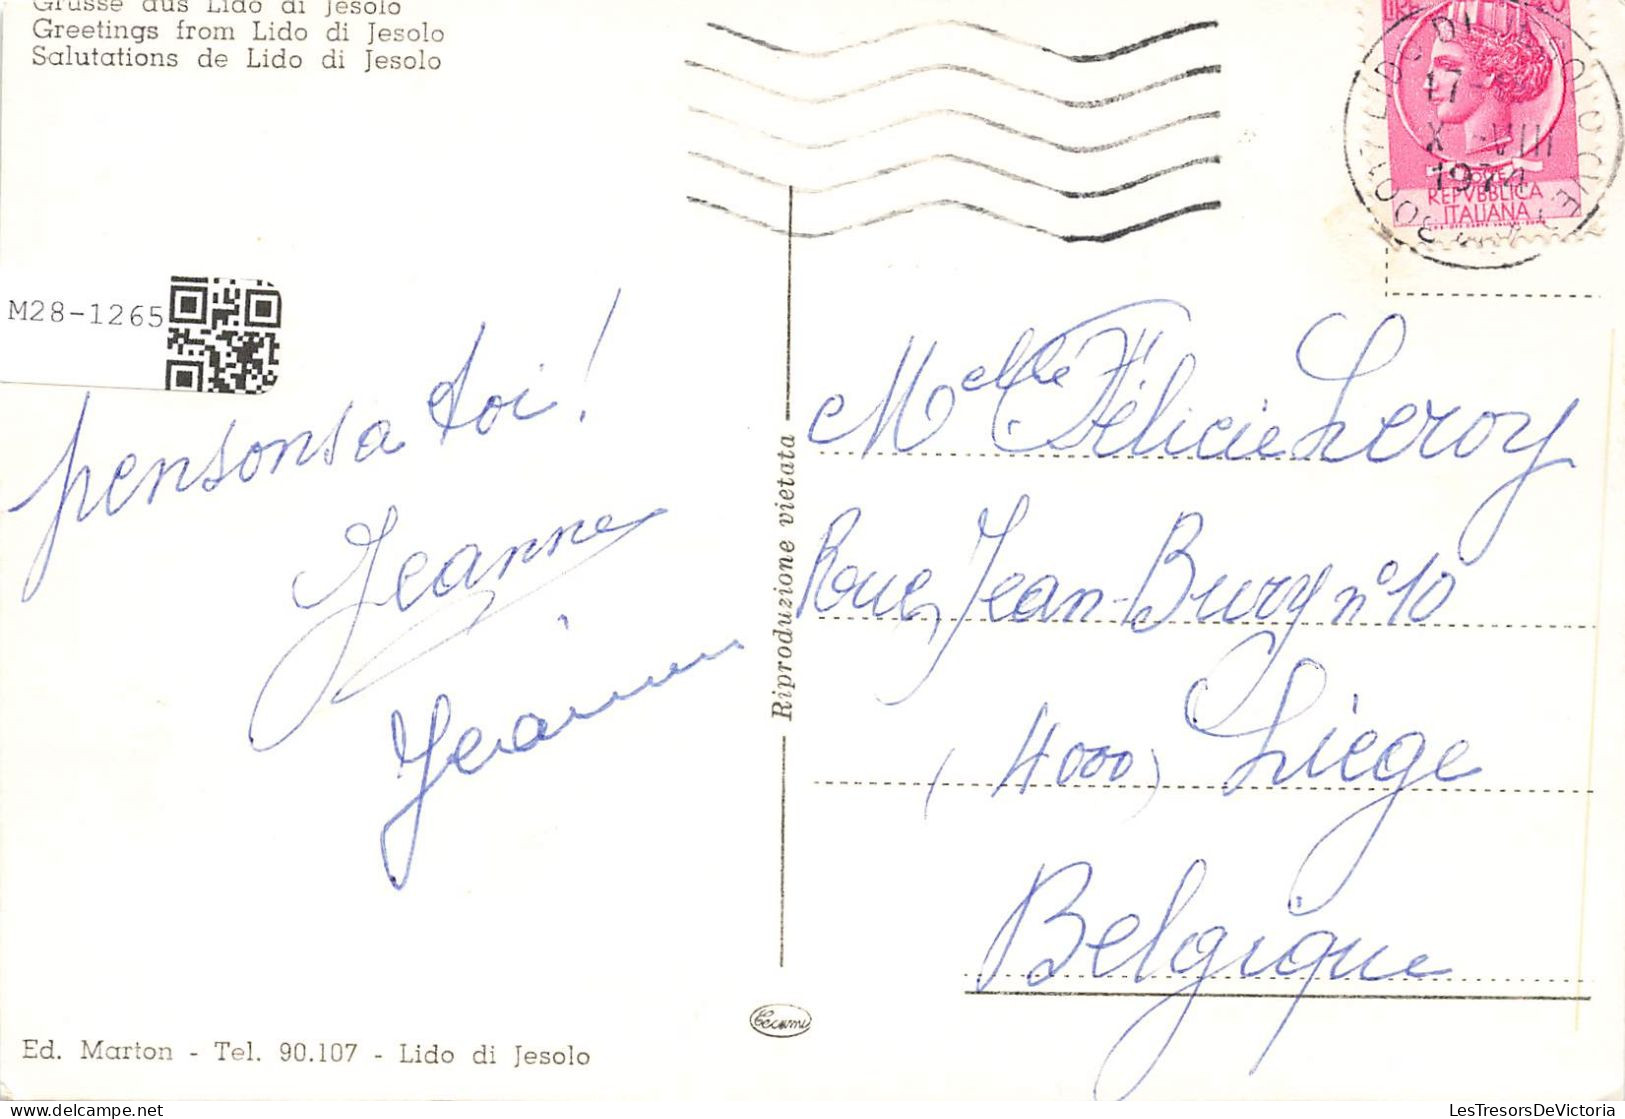 Grüsse aus Lido di Jesolo
Greetings from Lido di Jesolo
Salutations de Lido di Jesolo
M28-1265
pensons à toi!
Jeanne
Riproduzione vietata
30017 LIDO DI JESOLO (VE)
17-
X -VIII
1974
REPVBBLICA
ITALIANA
Melle Félicie Leroy
Rue Jean-Bury n°10
(4000) Liège
Belgique
Ed. Marton - Tel. 90.107 - Lido di Jesolo
LesTresorsDeVictoria